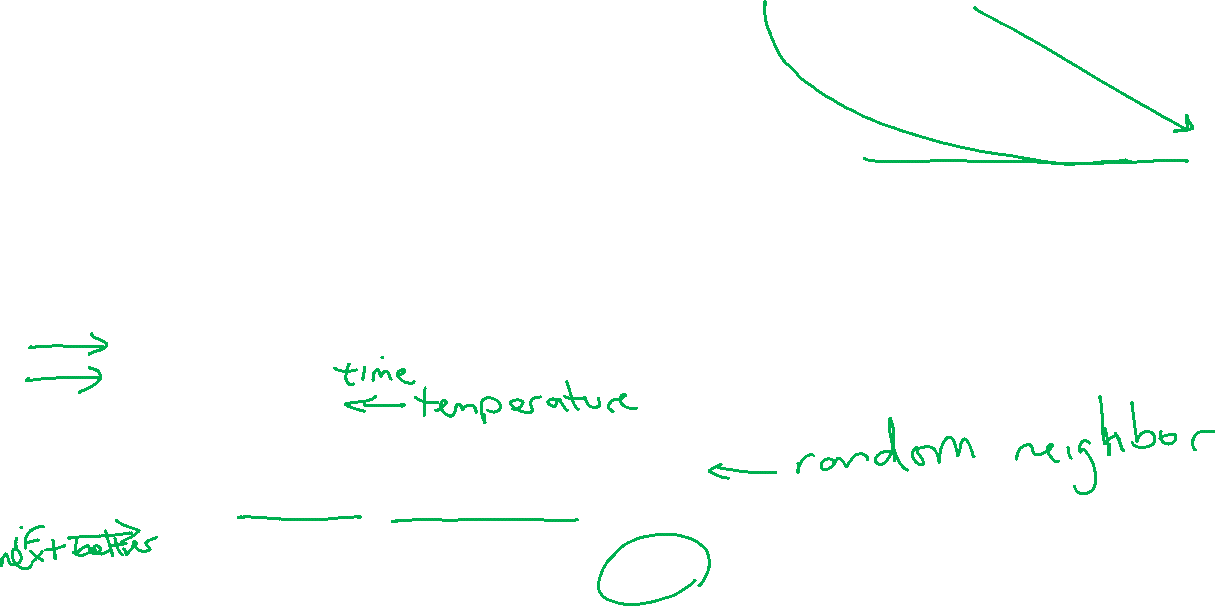 time
temperature
random neighbor
if
next better